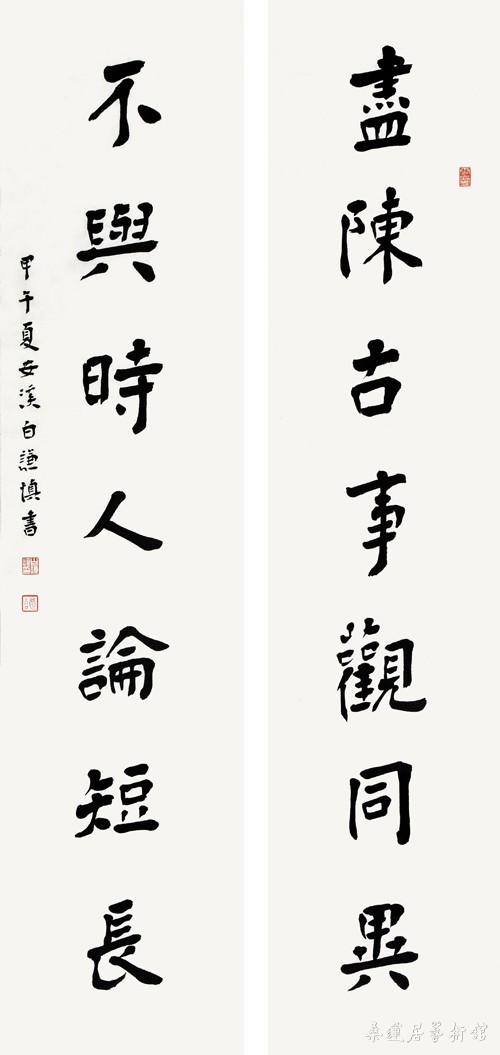 盡陳古事觀同異
不與時人論短長
甲午夏安溪白謙慎書
桑蓮居藝術館